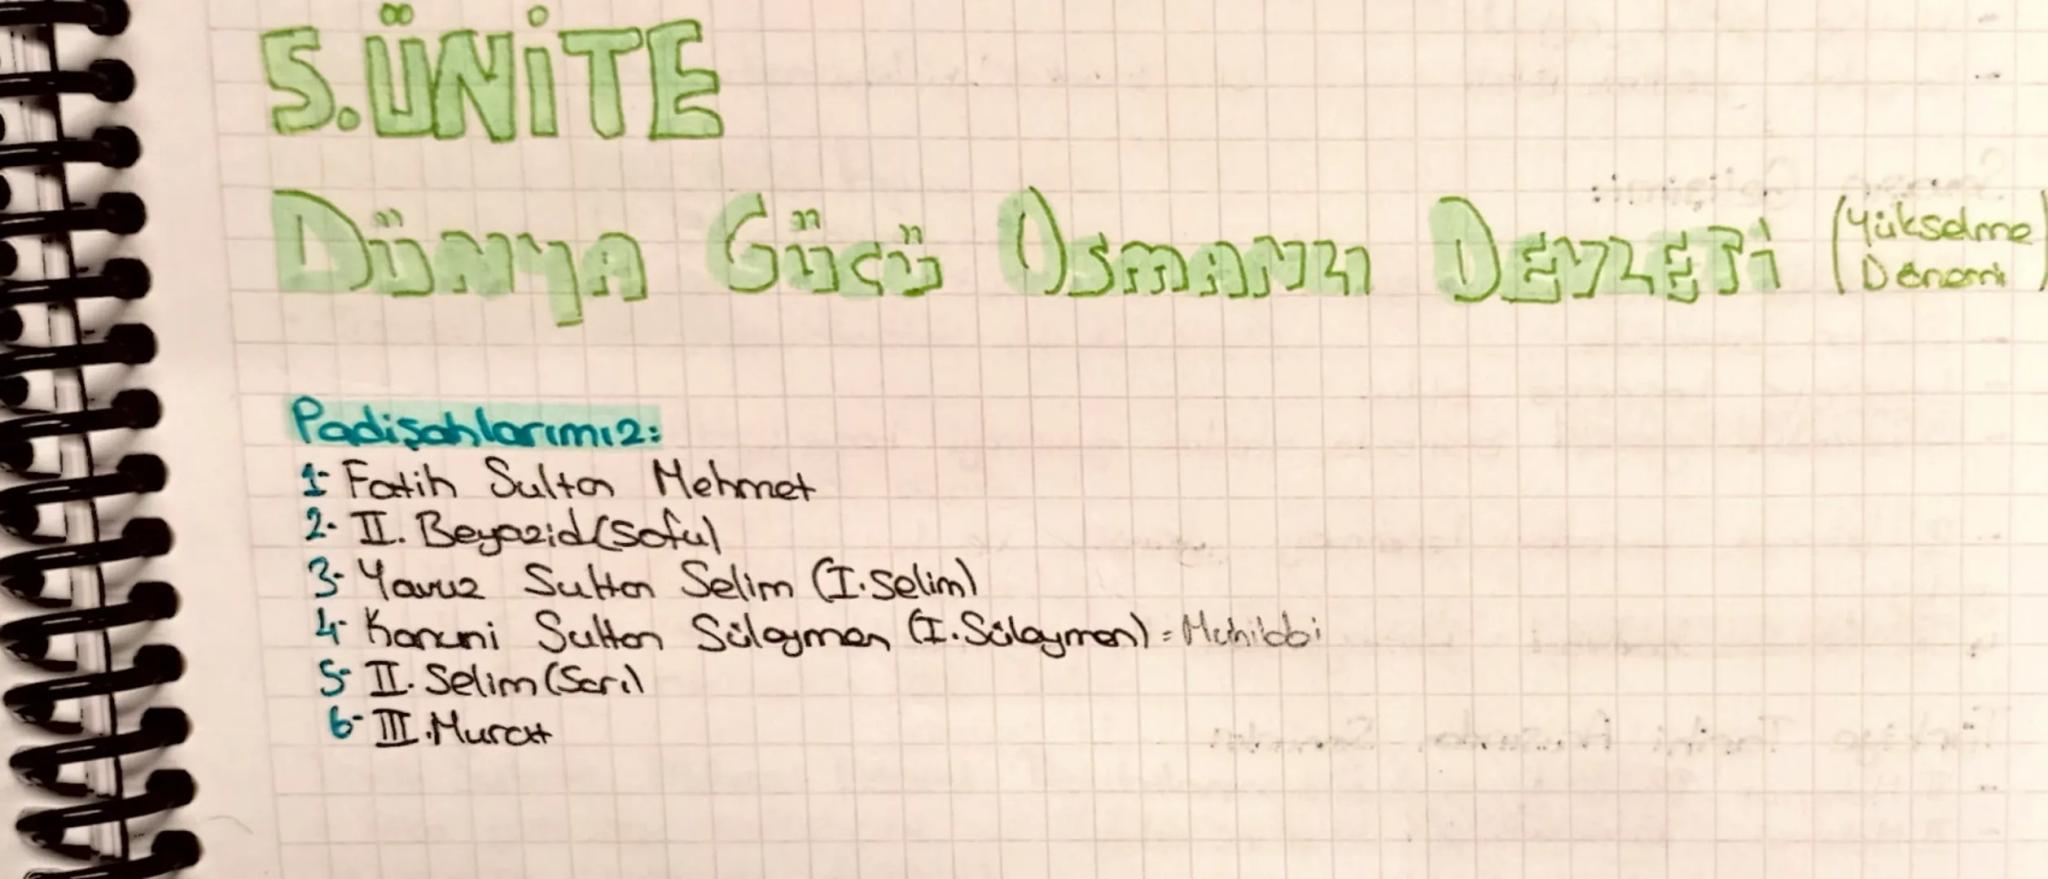 5.ÜNİTE
Dünya Gücü Osmanlı Devleti (Yükselme Dönemi)
Padişahlarımız:
1- Fatih Sultan Mehmet
2- II. Beyazid (Sofu)
3- Yavuz Sultan Selim (I.Selim)
4- Kanuni Sultan Süleyman (I.Süleyman) = Muhibbi
5- II. Selim (Sarı)
6- III.Murat